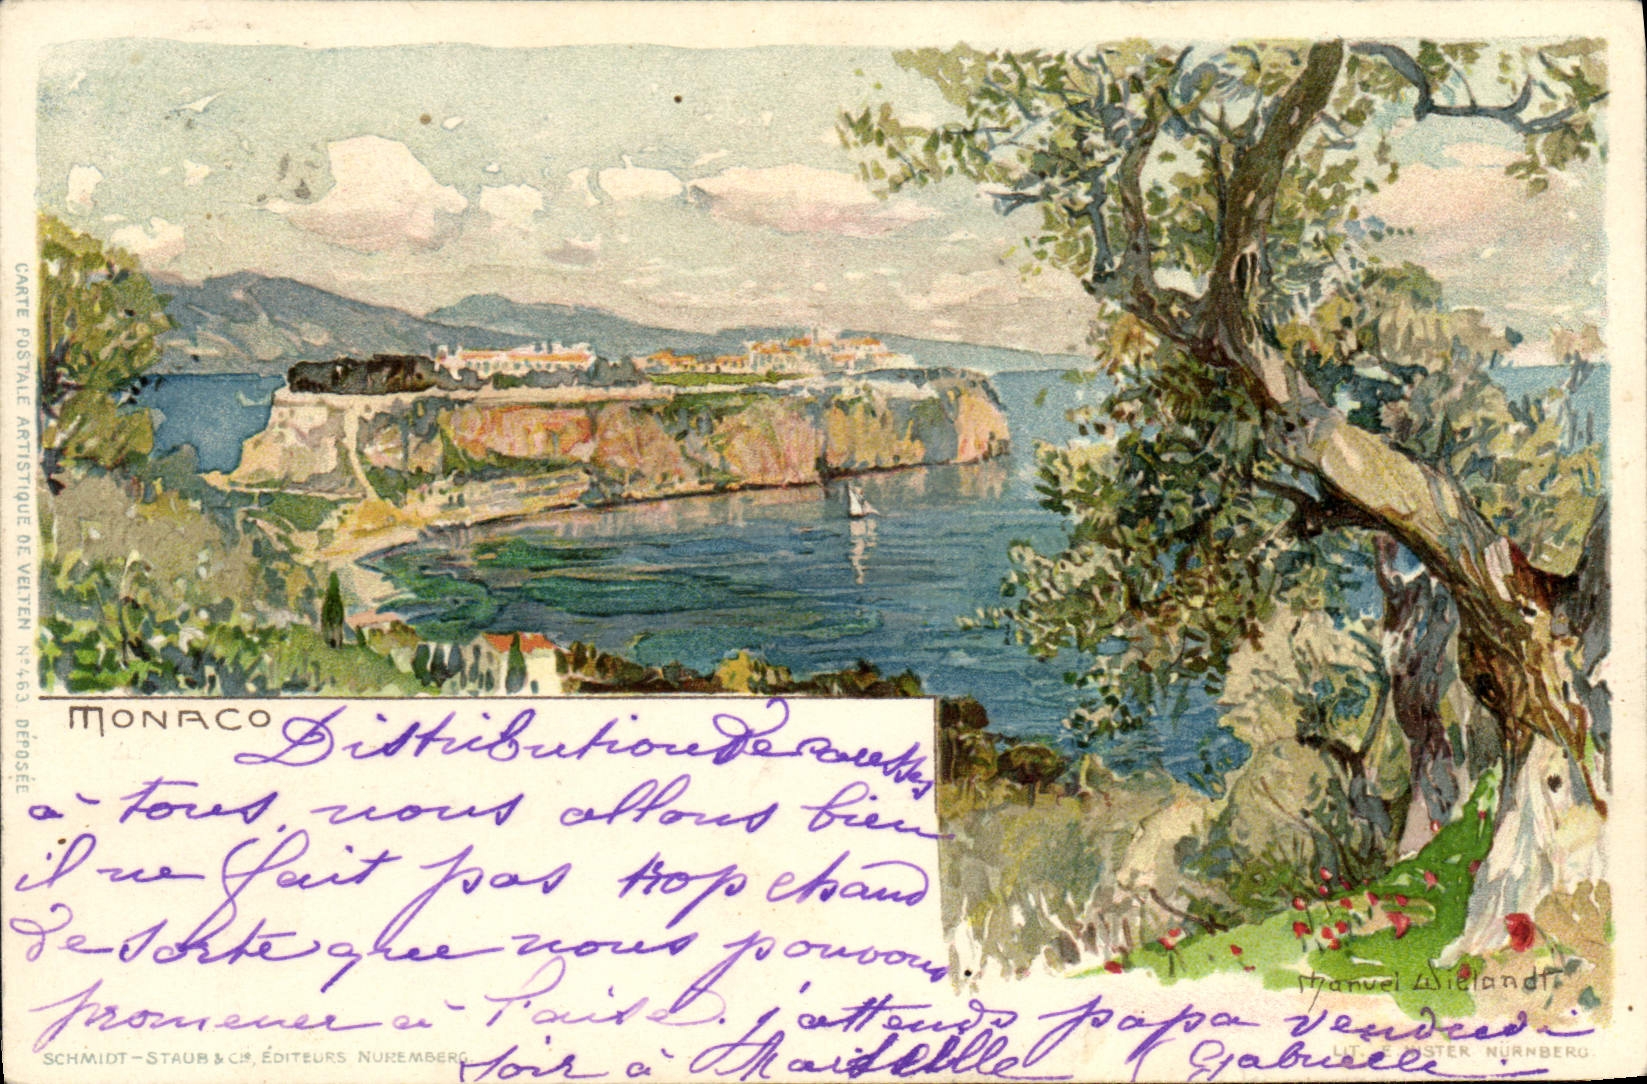 CARTE POSTALE ARTISTIQUE DE VELTEN Nº 463 DÉPOSÉE
MONACO
Distribution de caresses
à tous, nous allons bien
il ne fait pas trop chaud
de sorte que nous pouvons
promener à l'aise. j'attends papa vendredi
soir à Marseille Gabrielle
Manuel Wielandt
SCHMIDT-STAUB & Cie, ÉDITEURS NUREMBERG.
LIT. E. NISTER NÜRNBERG.